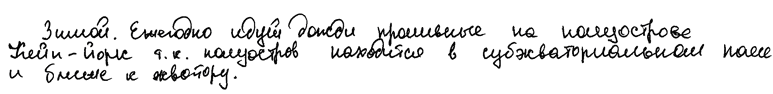 Зимой. Ежегодно идут дожди проливные на полуострове
Кейп-Йорк т.к. полуостров находится в субэкваториальном поясе
и ближе к экватору.